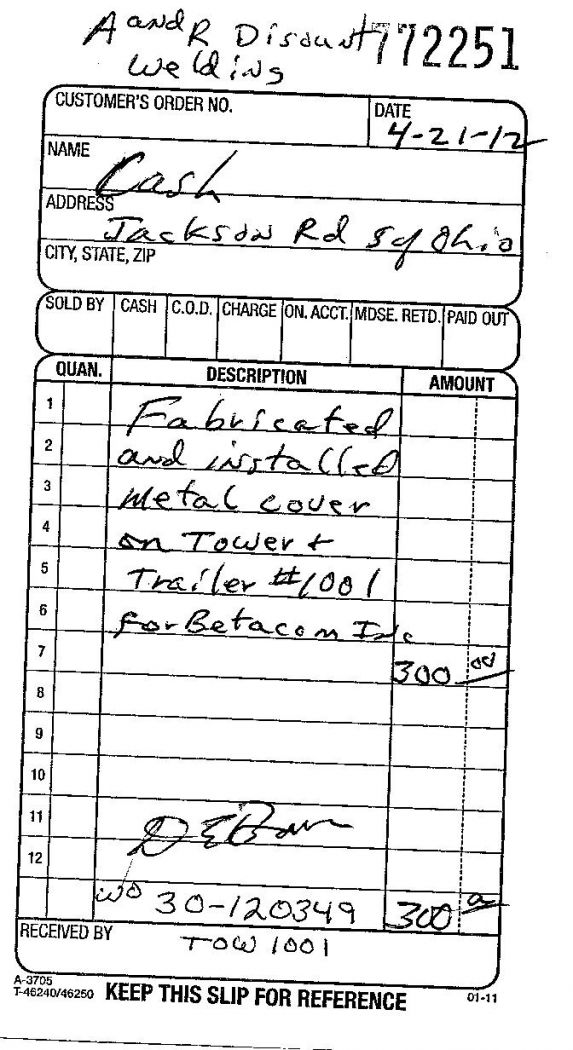 A and R Discount 772251
Welding
CUSTOMER'S ORDER NO. DATE
4-21-12
NAME
Cash
ADDRESS
Jackson Rd Ohio
CITY, STATE, ZIP
SOLD BY CASH C.O.D. CHARGE ON. ACCT. MDSE. RETD. PAID OUT
QUAN. DESCRIPTION AMOUNT
1 Fabricated
2 and installed
3 metal cover
4 on Tower +
5 Trailer #1001
6 for Betacom Inc
7 300 00
8
9
10
11
12
WO 30-120349 300
RECEIVED BY TOW 1001
A-3705
T-46240/46250 KEEP THIS SLIP FOR REFERENCE 01-11